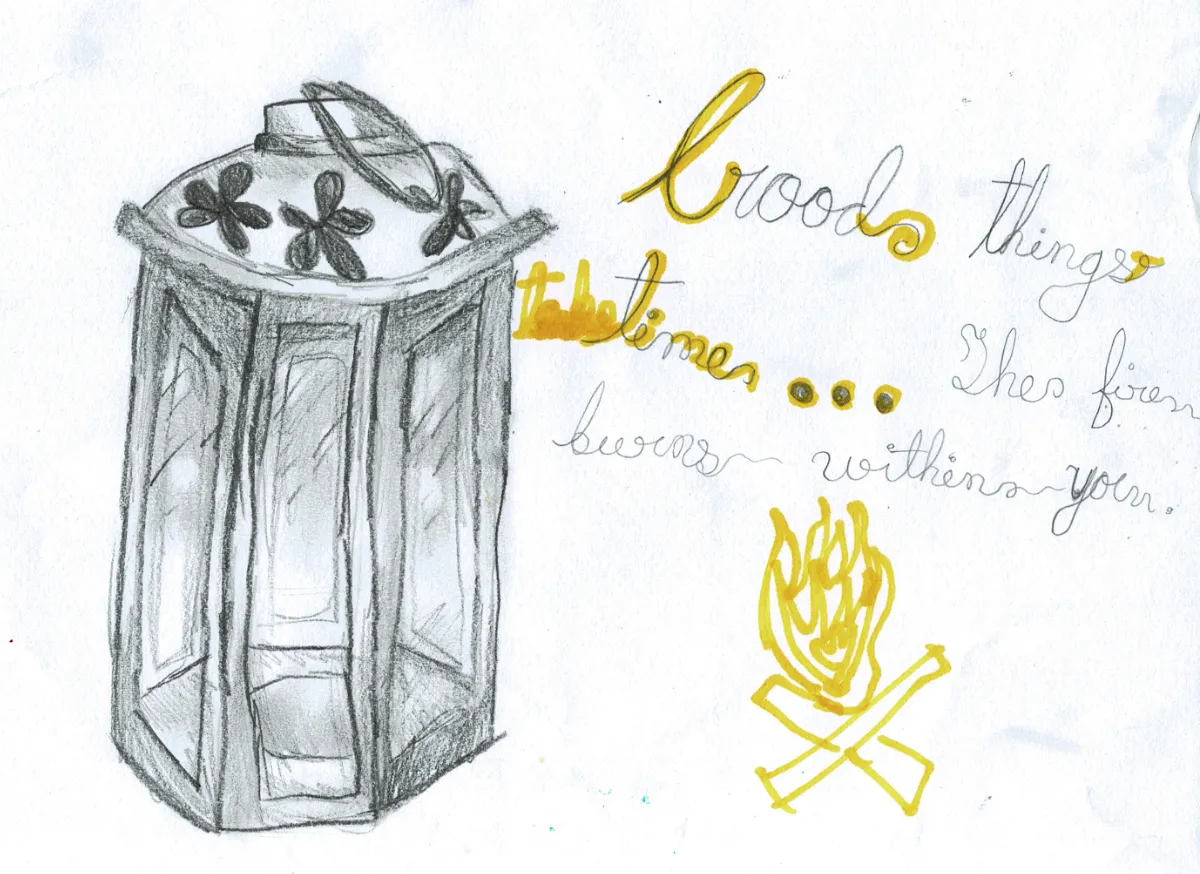 Goods things
take times ... Thes fires
burns withins you.